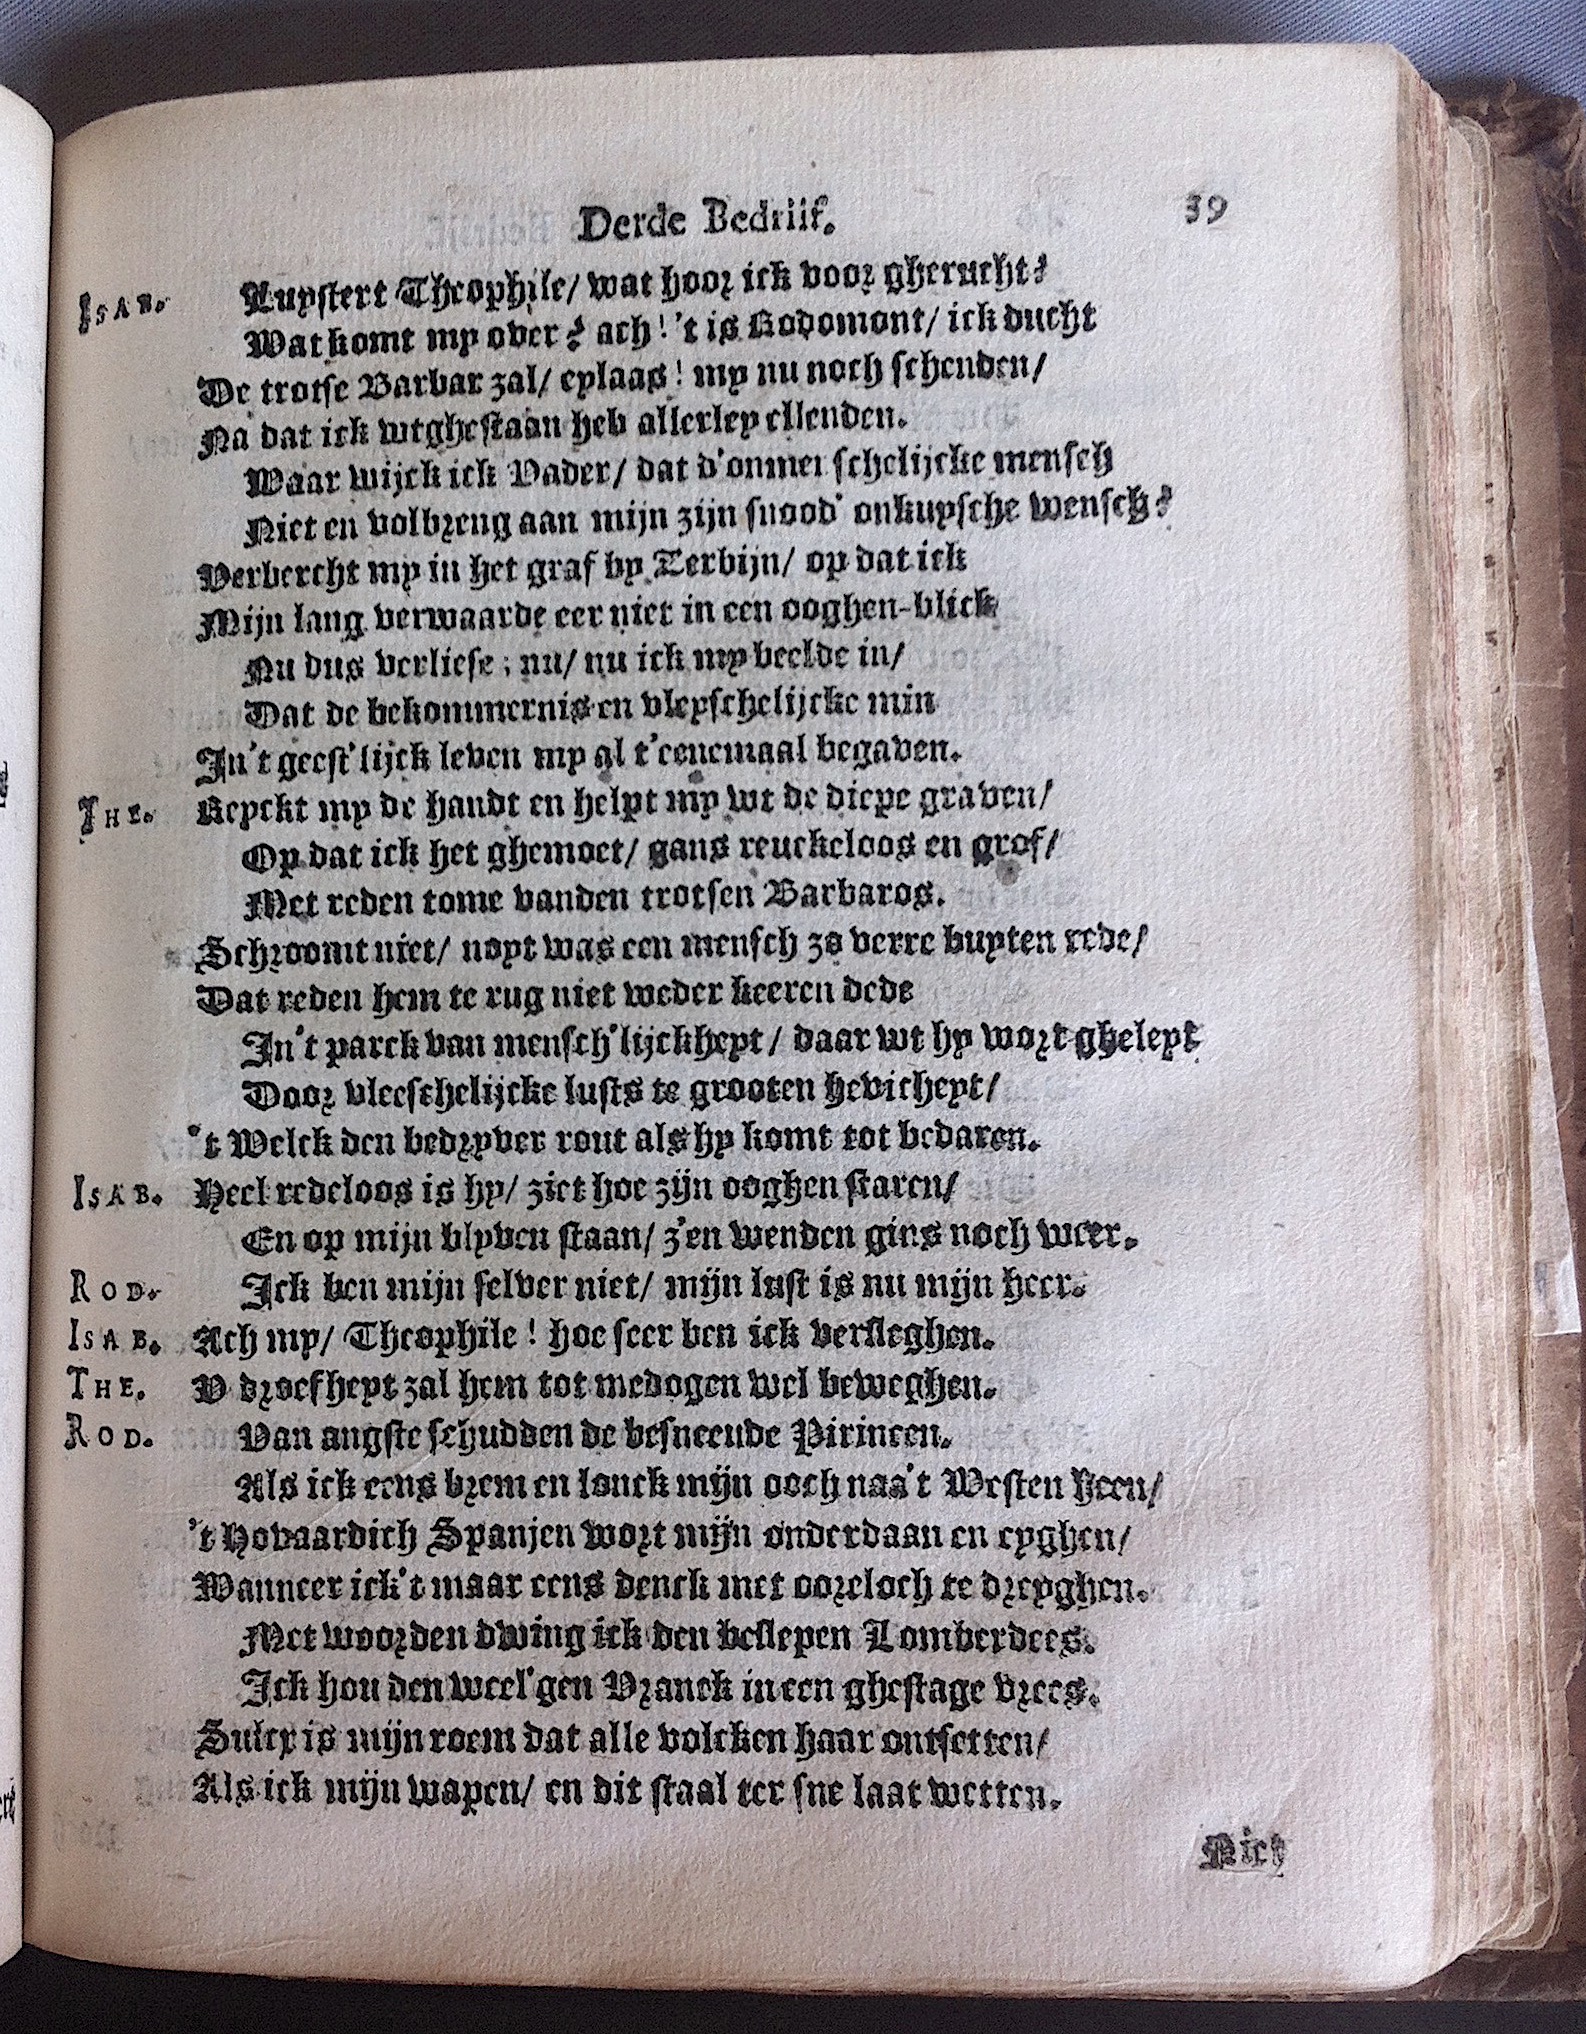 Derde Bedriif. 39
ISAB. Luystert Theophile/ wat hoor ick voor gherucht?
Wat komt my over? ach! 't is Rodomont/ ick ducht
De trotse Barbar zal/ eylaas! my nu noch schenden/
Na dat ick wtghestaan heb allerley ellenden.
Waar wijck ick Vader/ dat d'onmenschelijcke mensch
Niet en volbreng aan mijn zijn snood' onkuysche wensch?
Verbercht my in het graf by Zerbijn/ op dat ick
Mijn lang verwaarde eer niet in een ooghen-blick
Nu dus verliese; nu/ nu ick my beelde in/
Dat de bekommernis en vleyschelijcke min
In 't geest'lijck leven my al t'eenemaal begaven.
THE. Reyckt my de handt en helpt my wt de diepe graven/
Op dat ick het ghemoet/ gans reuckeloos en grof/
Met reden tome vanden trotsen Barbaros.
Schroomt niet/ noyt was een mensch zo verre buyten rede/
Dat reden hem te rug niet weder keeren dede
In 't parck van mensch'lijckheyt/ daar wt hy wort gheleyt
Door vleeschelijcke lusts te grooten hevicheyt/
't Welck den bedryver rout als hy komt tot bedaren.
ISAB. Heel redeloos is hy/ ziet hoe zijn ooghen staren/
En op mijn blyven staan/ z'en wenden gins noch weer.
ROD. Ick ben mijn selver niet/ mijn lust is nu mijn heer.
ISAB. Ach my/ Theophile! hoe seer ben ick versleghen.
THE. V droefheyt zal hem tot medogen wel beweghen.
ROD. Van angste schudden de besneeude Pirineen.
Als ick eens brem en lonck mijn ooch naa't Westen heen/
't Hovaardich Spanjen wort mijn onderdaan en eyghen/
Wanneer ick't maar eens denck met ooreloch te dreyghen.
Met woorden dwing ick den beslepen Lomberdees.
Ick hou den weel'gen Vranck in een ghestage vrees.
Sulcx is mijn roem dat alle volcken haar ontsetten/
Als ick mijn wapen/ en dit staal ter sne laat wetten.
Niet